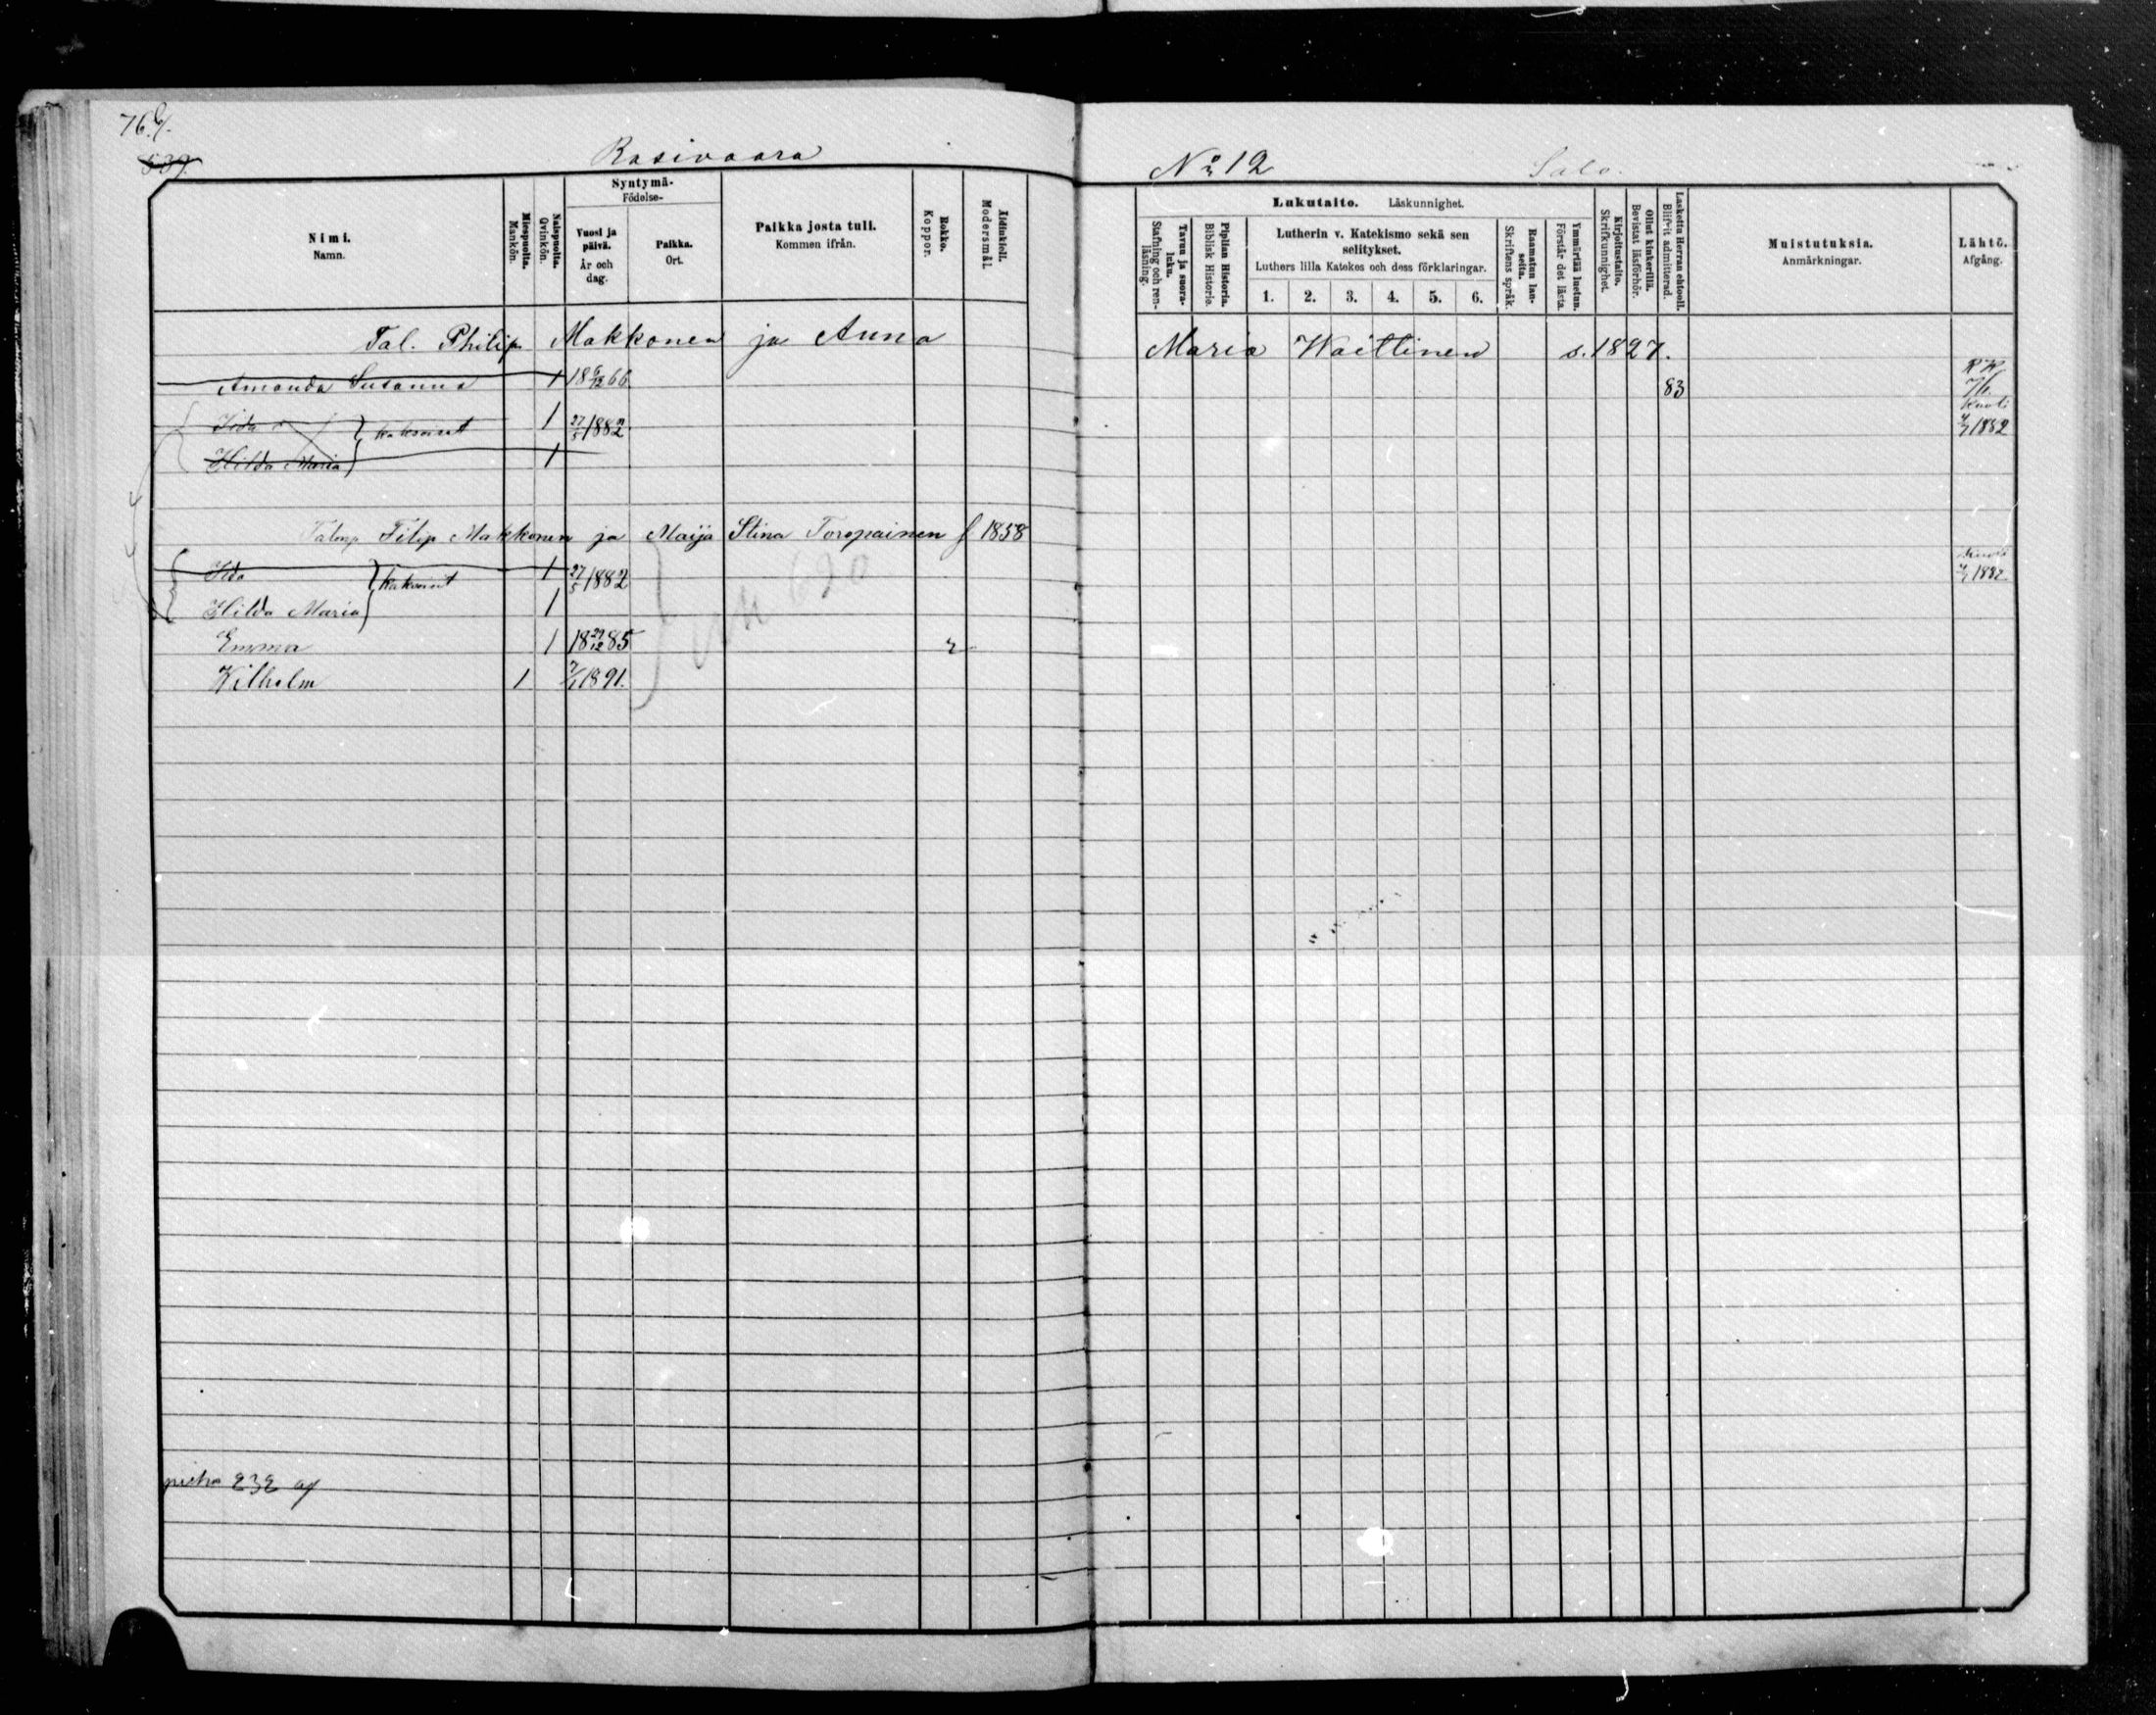 539.
Rasivaara
No 12
Salo.
Nimi.
Namn.
Miespuolta.
Mankön.
Naispuolta.
Qvinkön.
Syntymä-
Födelse-
Vuosi ja päivä.
År och dag.
Paikka.
Ort.
Paikka josta tuli.
Kommen ifrån.
Rokko.
Koppor.
Äidinkieli.
Modersmål.
Lukutaito. Läskunnighet.
Tavuu ja suora-luku.
Stafning och ren-läsning.
Piplian Historia.
Biblisk Historie.
Lutherin v. Katekismo sekä sen selitykset.
Luthers lilla Katekes och dess förklaringar.
1. 2. 3. 4. 5. 6.
Raamatun lauseita.
Skriftens språk.
Ymmärtää luetun.
Förstår det lästa.
Kirjoitustaito.
Skrifkunnighet.
Ollut kinkerillä.
Bevistat läsförhör.
Laskettu Herran ehtooll.
Blifvit admitterad.
Muistutuksia.
Anmärkningar.
Lähtö.
Afgång.
Tal. Philip Makkonen ja Anna Maria Waittinen s. 1827.
Amanda Susanna 1 18 6/12 66 83
Iida kaksoiset 1 27/5 1882 Kuoli 1882
Hilda Maria 1
Talonp Filip Makkonen ja Maija Stina Toropainen f 1858
Ida kaksoiset 1 27/5 1882 1882
Hilda Maria 1
Emma 1 18 29/12 85 r
Wilhelm 1 1891.
620
232